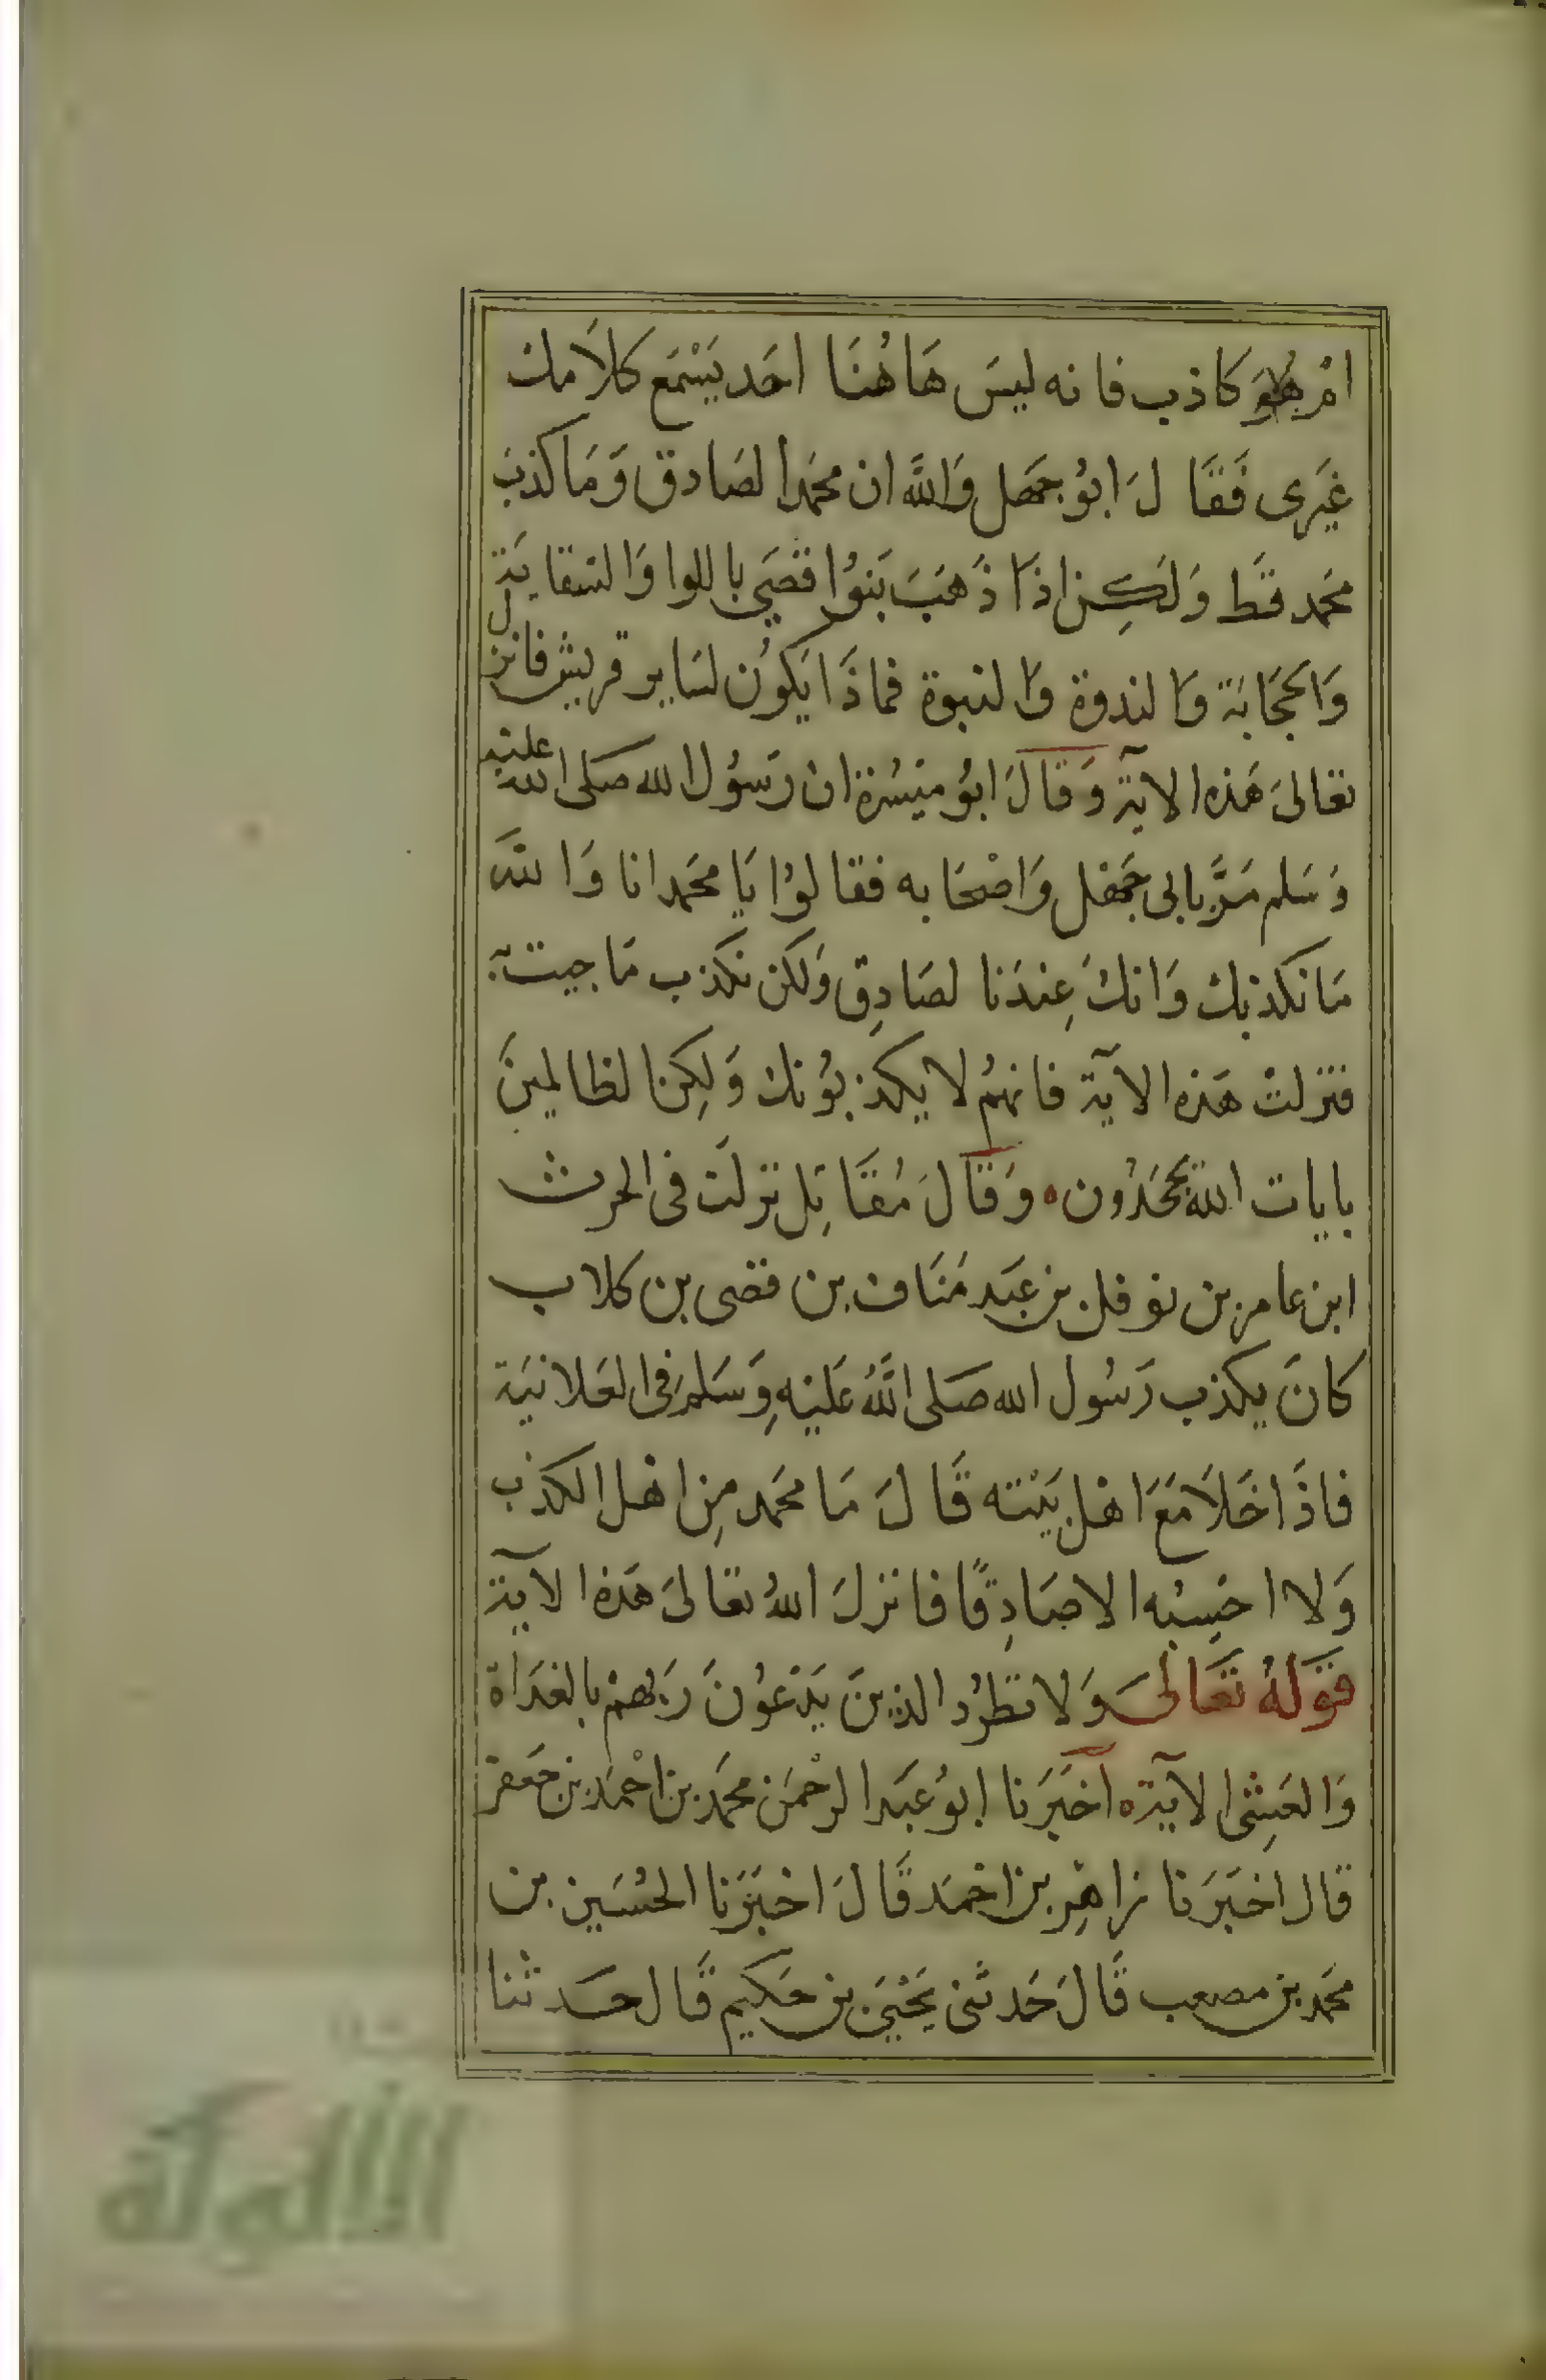 امْ هُوَ كاذب فانه ليسَ هَاهُنَا احَد يَسْمَع كلاَمك
غيَرى فَقَالَ ابُو جَهَل وَاللَّه ان محمَدا لصَادق وَمَا كذبَ
محَمد قَط وَلَكِن اذَا ذَهَبَ بَنوُا قصَي باللوا وَالسقايَة
وَالحجَابَة وَالندوة وَالنبوة فماذَا يَكوُن لسَاير قريش فانزل
تعَالىَ هَذه الآية وَقَالَ ابوُ ميَسُرة ان رَسوُل الله صَلى الله عليَه
وَسَلم مَرَّ بابى جَهْل وَاصْحَابه فقالوُا يَا محَمد انا وَاللَّه
مَا نكذبك وَانكَ عِندَنا لصَادِق وَلكن نكذب مَا جيت به
فنزلتْ هَذه الآية فانهمُ لا يكذبوُنك وَلكِن الظالميِنَ
بايات اللَّه يجَحَدُون ه وَقَالَ مُقَاتِل نزلَت فى الحرث
ابن عامر بن نوفل بن عَبَد مَنَاف بن قصى بن كلاب
كانَ يكذب رَسُول الله صَلى اللَّهُ عَليَهِ وَسَلم فى العَلانيَة
فاذَا خَلاَ مَعَ اهْل بَيْته قَالَ مَا محَمد مِن اهْل الكذب
وَلا احْسِبُه الا صَادِقًا فانزلَ اللهُ تعَالىَ هَذه الآية
قوَلهُ تعَالىَ وَلا تطرُد الذينَ يَدْعوُنَ رَبهمْ بالغدَاة
وَالعَشِى الآية ه اَخبَرَنا ابوُ عبَد الرحْمَن محمَد بن احْمَد بن جَعفر
قال اخبَرَنا زاهِر بن احْمَد قَالَ اخبَرَنا الحُسَين بن
محَمد بن مصعب قَالَ حَدثنى يَحْيىَ بن حَكيم قَال حَدثنا
الألوكة